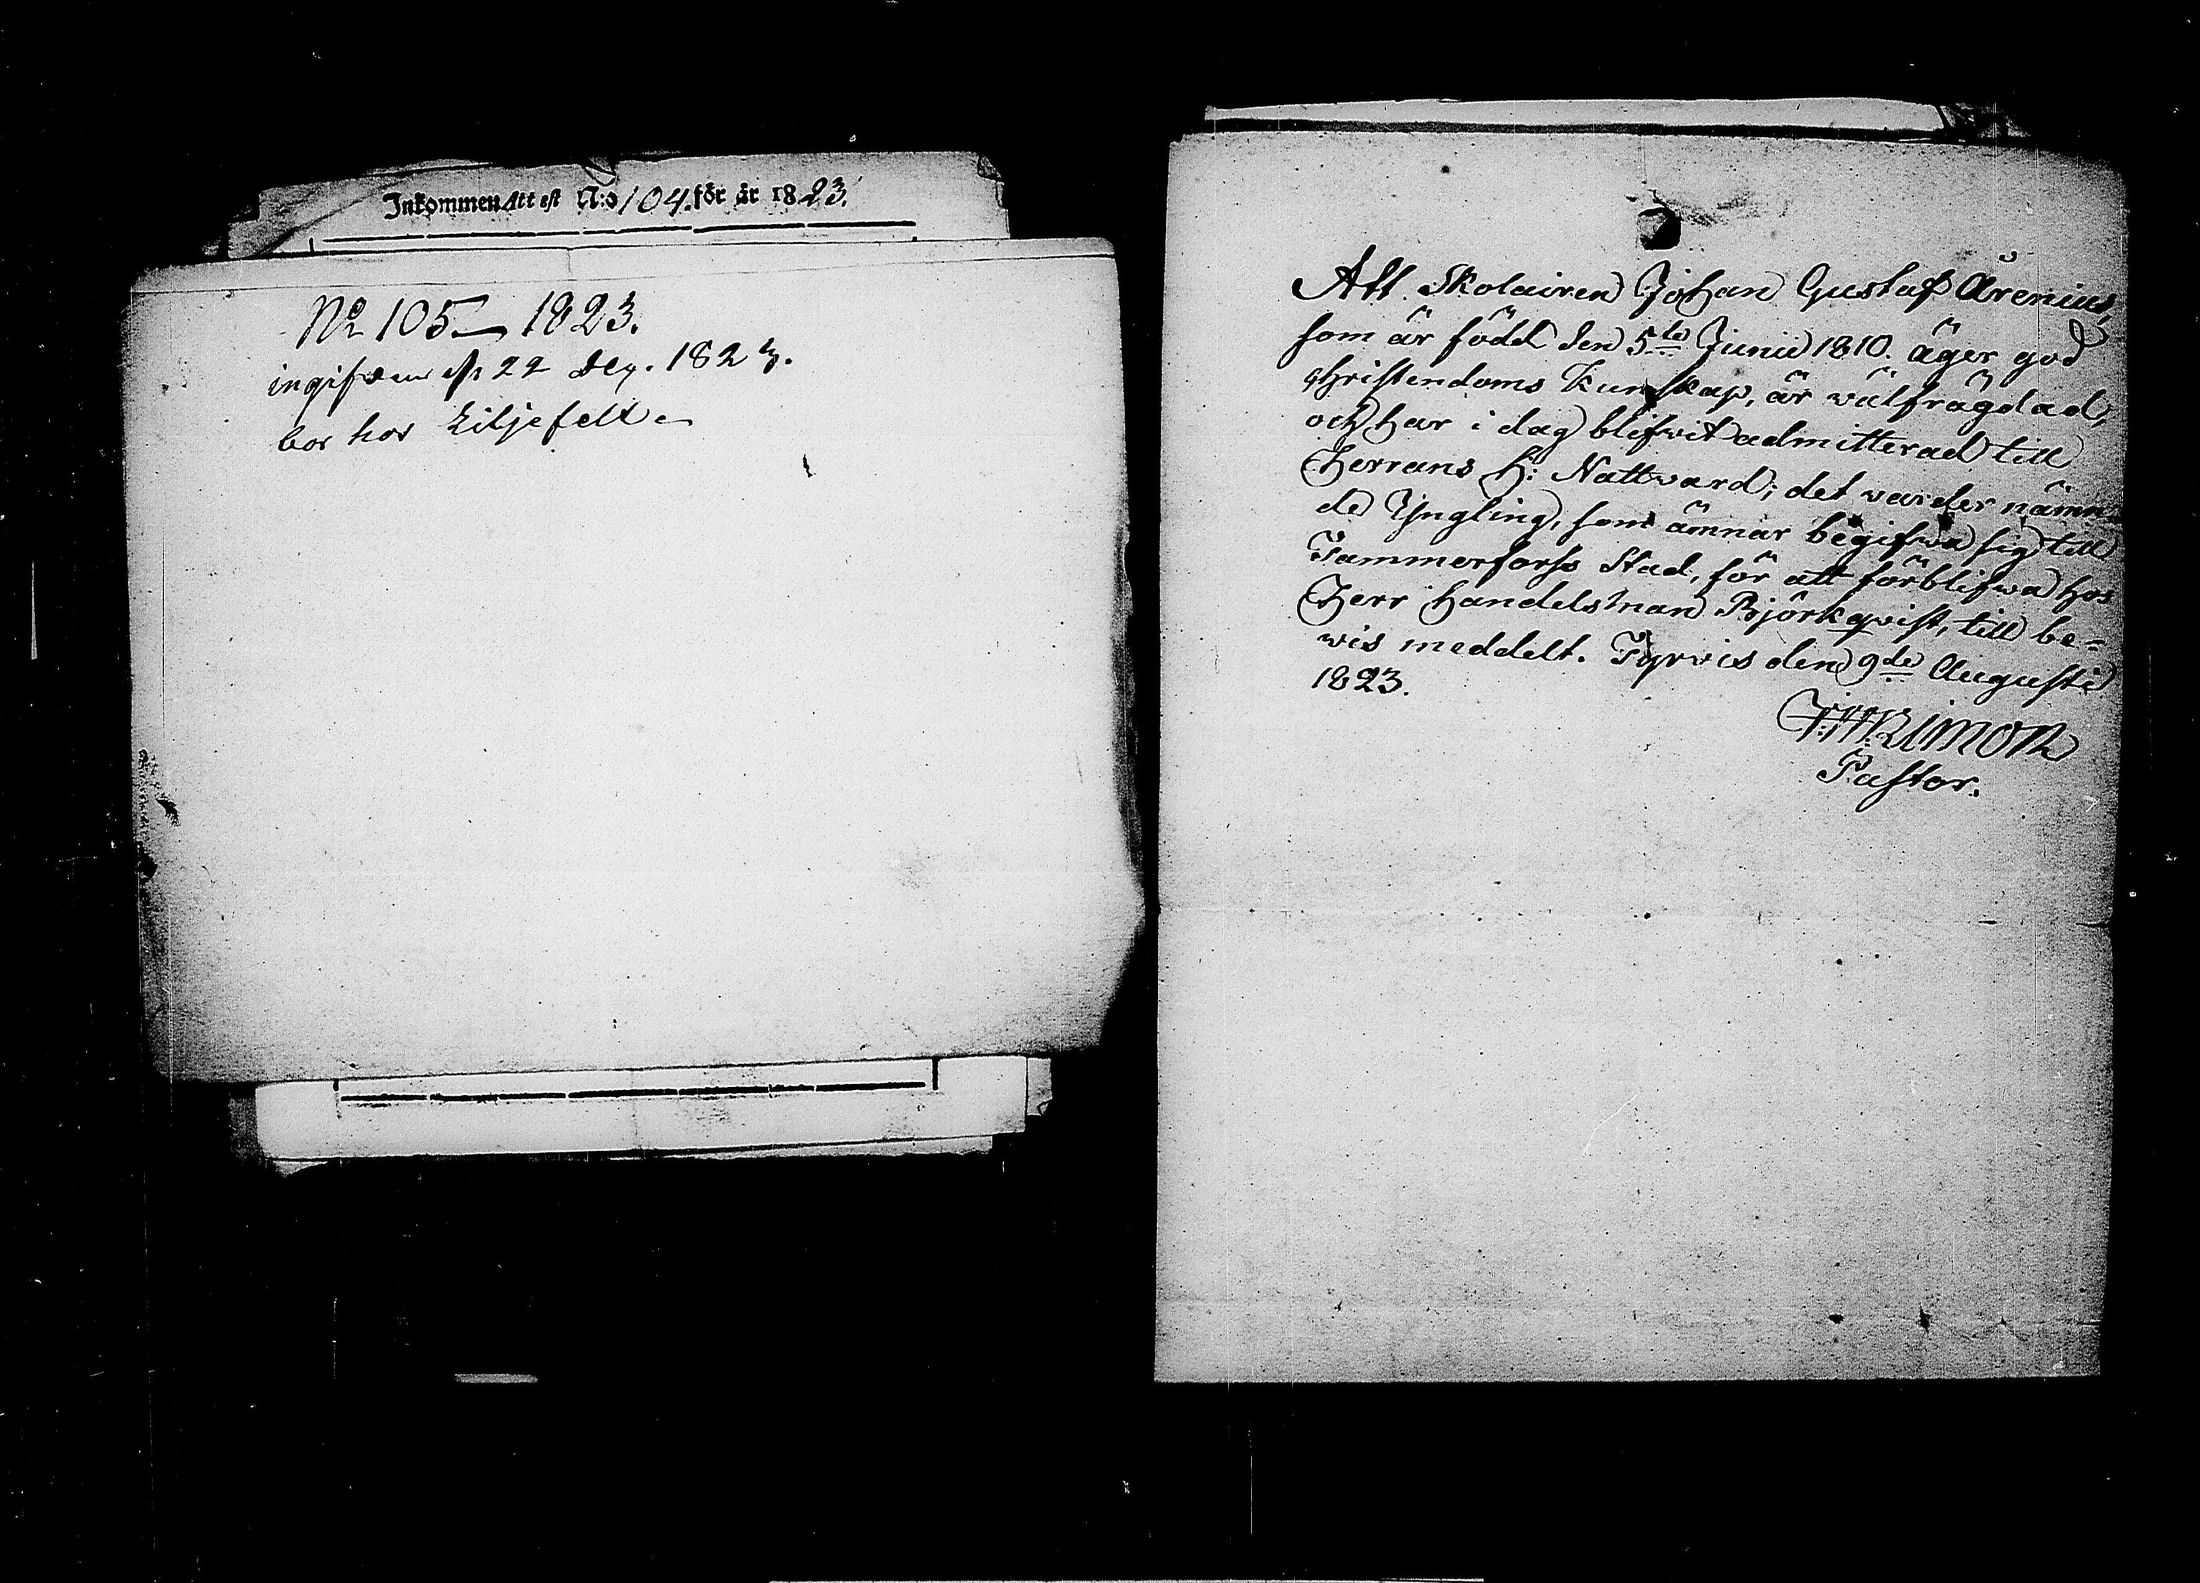 Inkommen Attest N:o 104. för år 1823.
No 105 — 1823.
ingifven d. 22 Dec. 1823.
bor hos Liljefelt
Att Skolairen Johan Gustaf Ärenius,
som är född den 5te Junii 1810. äger god
Christendoms Kunskap, är wälfrägdad,
och har i dag blifwit admitterad till
Herrans H: Nattward; det warder nämn-
de Yngling, som ämnar begifwa sig till
Tammerforss Stad, för att förblifwa hos
Herr Handelsman Björkqvist, till be-
wis meddelt. Tyrwis den 9de Augusti
1823.
Pastor.